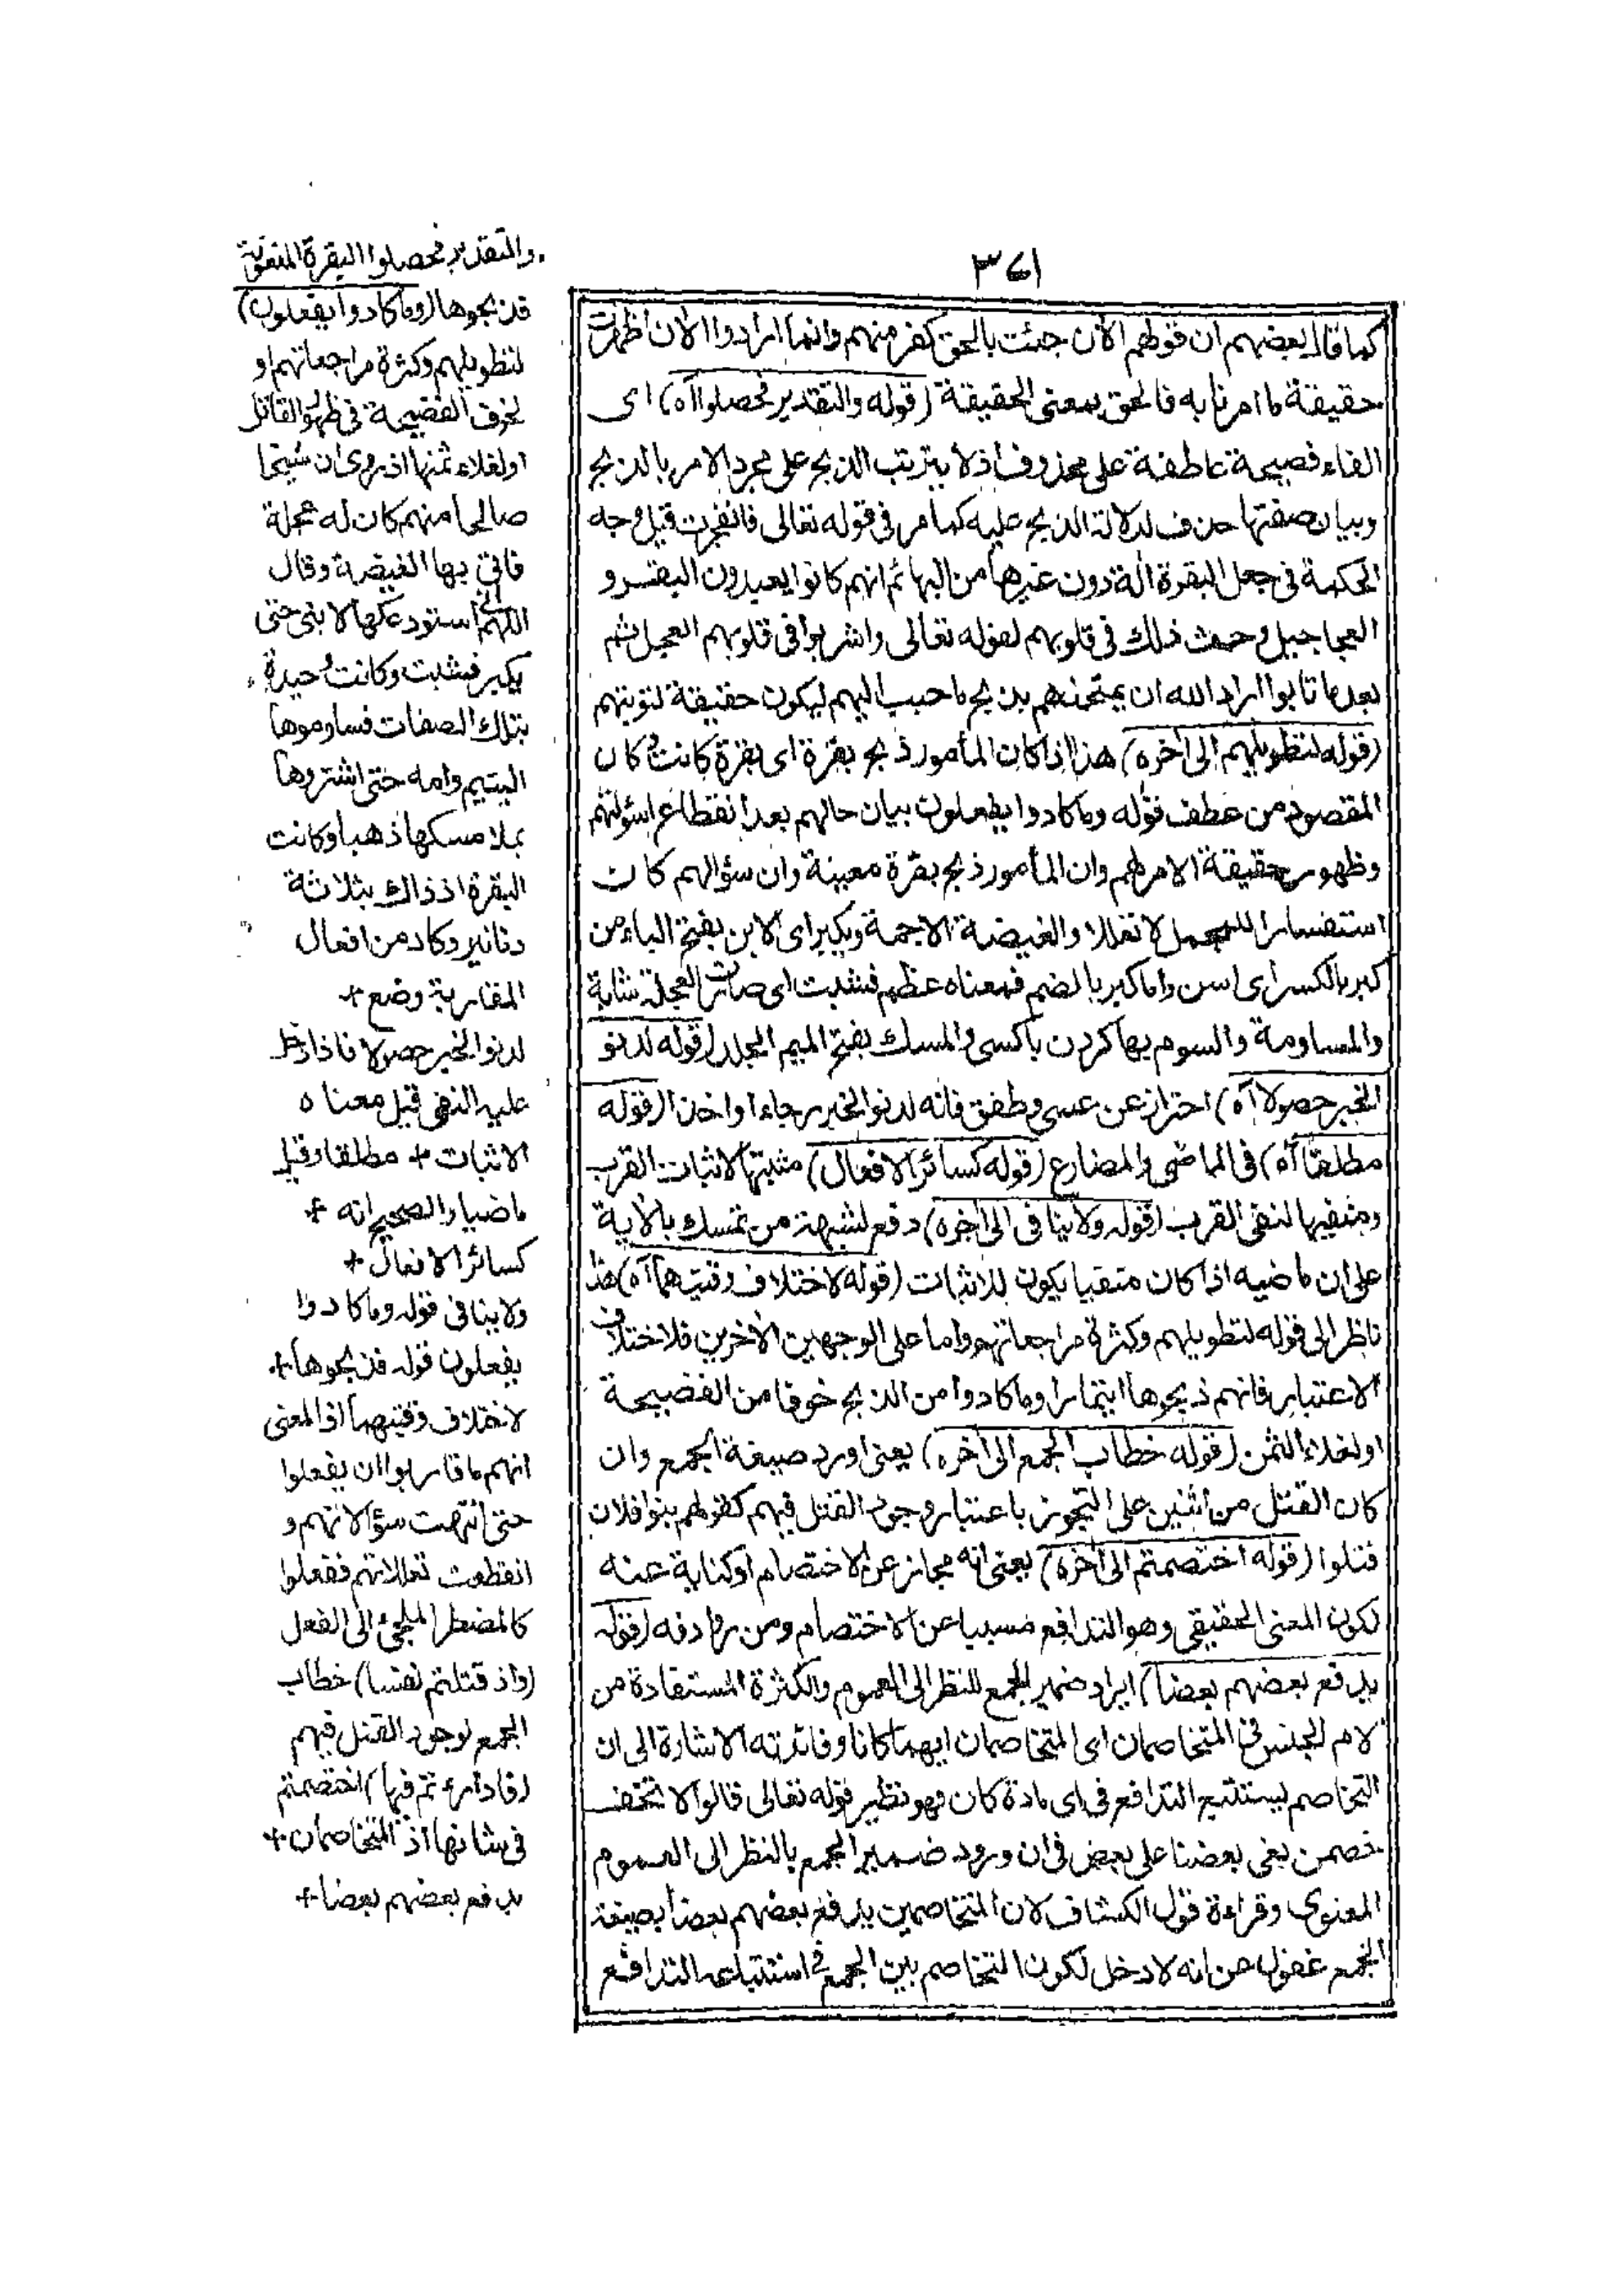 ٣٤١
كما قال بعضهم ان قولهم الأن جئت بالحق كفر منهم وانما ارادوا الأن اظهرت
حقيقة ما امرنا به فالحق بمعنى الحقيقة (قوله والتقدير فحصلوا آه) اى
الفاء فصيحة عاطفة على محذوف اذ لا يترتب الذبح على مجرد الامر بالذبح
وبيان صفتها حذف لدلالة الذبح عليه كما مر فى قوله تعالى فانفجرت قيل وجه
الحكمة فى جعل البقرة آلة دون غيرها من البهائم انهم كانوا يعبدون البقر و
العجاجيل وحبب ذلك فى قلوبهم لقوله تعالى واشربوا فى قلوبهم العجل ثم
بعد ما تابوا اراد الله ان يمتحنهم بذبح ما حبب اليهم ليكون حقيقة لتوبتهم
(قوله لتطويلهم الى اخره) هذا اذا كان المأمور ذبح بقرة اى بقرة كانت وكان
المقصود من عطف قوله وما كادوا يفعلون بيان حالهم بعد انقطاع اسئولتهم
وظهور حقيقة الامر لهم وان المأمور ذبح بقرة معينة وان سؤالهم كان
استفسارا للمجمل لا تعللا والغيضة الاجمة ويكبر اى الابن بفتح الباء من
كبر بالكسر اى اسن واما كبر بالضم فمعناه عظم فشبت اى صارت العجلة شابة
والمساومة والسوم بها كردن باكسى والمسك بفتح الميم الجلد (قوله لدنو
الخبر حصولا آه) احتراز عن عسى وطفق فانه لدنو الخبر رجاء او اخذا (قوله
مطلقا آه) فى الماضى والمضارع (قوله كسائر الافعال) مثبتها لاثبات القرب
ومنفيها لنفى القرب (قوله ولا ينافى الى اخره) دفع لشبهة من تمسك بالآية
على ان ماضيه اذا كان منفيا يكون للاثبات (قوله لاختلاف وقتيهما آه) هذا
ناظر الى قوله لتطويلهم وكثرة مراجعاتهم واما على الوجهين الأخرين فلاختلاف
الاعتبار فانهم ذبحوها ايتمارا وما كادوا من الذبح خوفا من الفضيحة
او لغلاء الثمن (قوله خطاب الجمع الى اخره) يعنى اورد صيغة الجمع وان
كان القتل من اثنين على التجوز باعتبار وجود القتل فيهم كقولهم بنوا فلان
قتلوا (قوله اختصمتم الى اخره) يعنى انه مجاز عن الاختصام او كناية عنه
لكون المعنى الحقيقى وهو التدافع مسببا عن الاختصام ومن روادفه (قوله
يدفع بعضهم بعضا) ايراد ضمير الجمع للنظر الى العموم والكثرة المستفادة من
لام الجنس فى المتخاصمان اى المتخاصمان ايهما كانا وفائدته الاشارة الى ان
التخاصم يستتبع التدافع فى اى مادة كان فهو نظير قوله تعالى قالوا لا تخف
خصمن بغى بعضنا على بعض فى ان ورود ضمير الجمع بالنظر الى العموم
المعنوى وقراءة قول الكشاف لان المتخاصمين يدفع بعضهم بعضا بصيغة
الجمع غفول عن انه لا دخل لكون التخاصم بين الجمع فى استتباعه التدافع
والتقدير فحصلوا البقرة المنعوتة
فذبحوها (وما كادوا يفعلون)
لتطويلهم وكثرة مراجعاتهم او
لخوف الفضيحة فى ظهور القاتل
او لغلاء ثمنها اذ روى ان شيخا
صالحا منهم كان له عجلة
فاتى بها الغيضة وقال
اللهم انى استودعكها لابنى حتى
يكبر فشبت وكانت وحيدة
بتلك الصفات فساوموها
اليتيم وامه حتى اشتروها
بملا مسكها ذهبا وكانت
البقرة اذ ذاك بثلاثة
دنانير وكاد من افعال
المقاربة وضع +
لدنو الخبر حصولا فاذا دخل
عليه النفى قيل معناه
الاثبات + مطلقا وقيل
ماضيا والصحيح انه +
كسائر الافعال +
ولا ينافى قوله وما كادوا
يفعلون قوله فذبحوها +
لاختلاف وقتيهما اذ المعنى
انهم ما قاربوا ان يفعلوا
حتى انتهت سؤالاتهم و
انقطعت تعللاتهم ففعلوا
كالمضطر الملجئ الى الفعل
(واذ قتلتم نفسا) خطاب
الجمع لوجود القتل فيهم
(فادارءتم فيها) اختصمتم
فى شانها اذ المتخاصمان +
يدفع بعضهم بعضا +